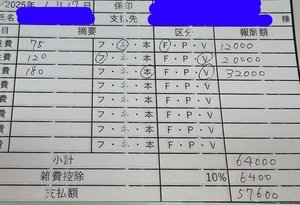 2025年 1月17日 係印
氏名 支払先 様
目 摘要 区分 報酬額
費 75 フ・ネ・本 F・P・V 12000
費 120 フ・ネ・本 F・P・V 20000
費 180 フ・ネ・本 F・P・V 32000
費 フ・ネ・本 F・P・V
費 フ・ネ・本 F・P・V
費 フ・ネ・本 F・P・V
費 フ・ネ・本 F・P・V
費 フ・ネ・本 F・P・V
小計 64000
雑費控除 10% 6400
支払額 57600